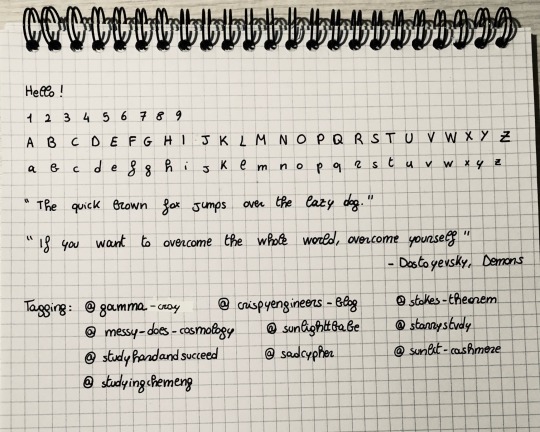 Hello!
1 2 3 4 5 6 7 8 9
A B C D E F G H I J K L M N O P Q R S T U V W X Y Z
a b c d e f g h i j k l m n o p q r s t u v w x y z
"The quick brown fox jumps over the lazy dog."
"If you want to overcome the whole world, overcome yourself"
- Dostoyevsky, Demons
Tagging: @gamma-cray @crispyengineers-blog @stokes-theorem
@messy-does-cosmology @sunlighttbabe @starrystvdy
@studyhardandsucceed @sadcypher @sunlit-cashmere
@studyingchemeng